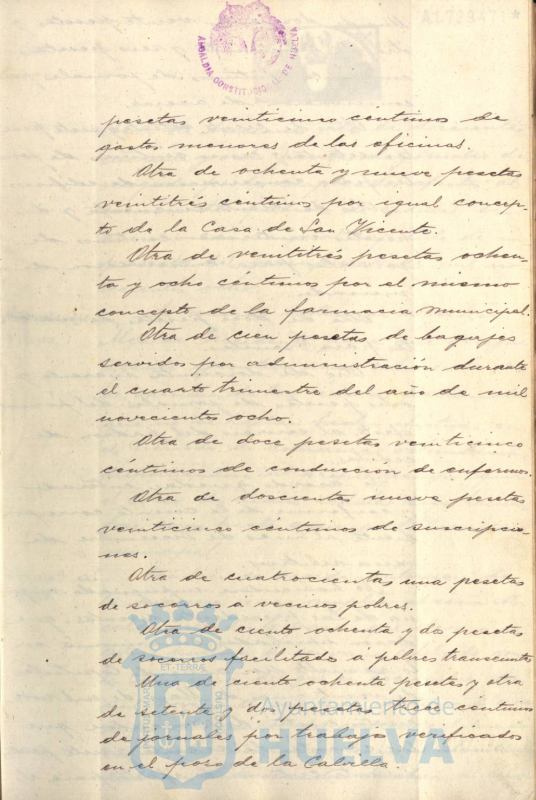 A1.729.471*
ALCALDIA CONSTITUCIONAL DE HUELVA
pesetas veinticinco centimos de
gastos menores de las oficinas.
Otra de ochenta y nueve pesetas
veintitrés céntimos por igual concep-
to de la Casa de San Vicente.
Otra de veintitrés pesetas ochen-
ta y ocho céntimos por el mismo
concepto de la farmacia municipal.
Otra de cien pesetas de bagajes
servidos por administración durante
el cuarto trimestre del año de mil
novecientos ocho.
Otra de doce pesetas veinticinco
céntimos de conducción de enfermos.
Otra de doscientas nueve pesetas
veinticinco céntimos de suscripcio-
nes.
Otra de cuatrocientas una pesetas
de socorros á vecinos pobres.
Otra de ciento ochenta y dos pesetas
de socorros facilitados á pobres transeuntes
Una de ciento ochenta pesetas y otra
de setenta y dos pesetas trece céntimos
de jornales por trabajos verificados
en el pozo de la Calvilla.
ET TERRÆ
Ayuntamiento de
HUELVA